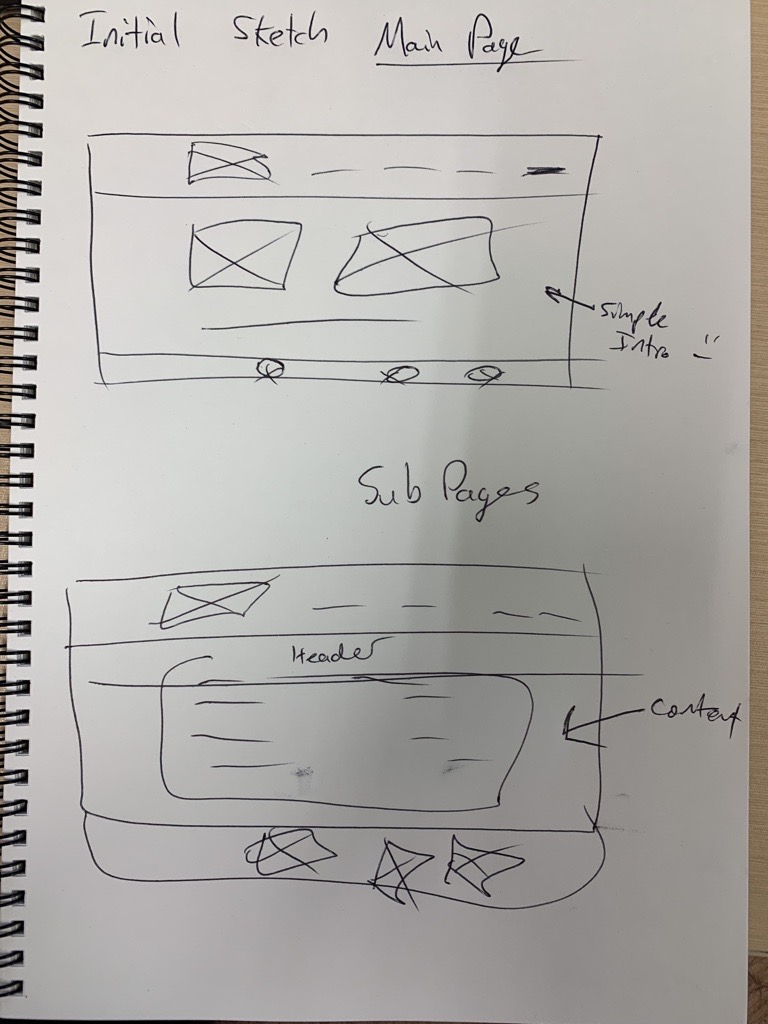 Initial Sketch Main Page
Simple
Intro
Sub Pages
Header
Content